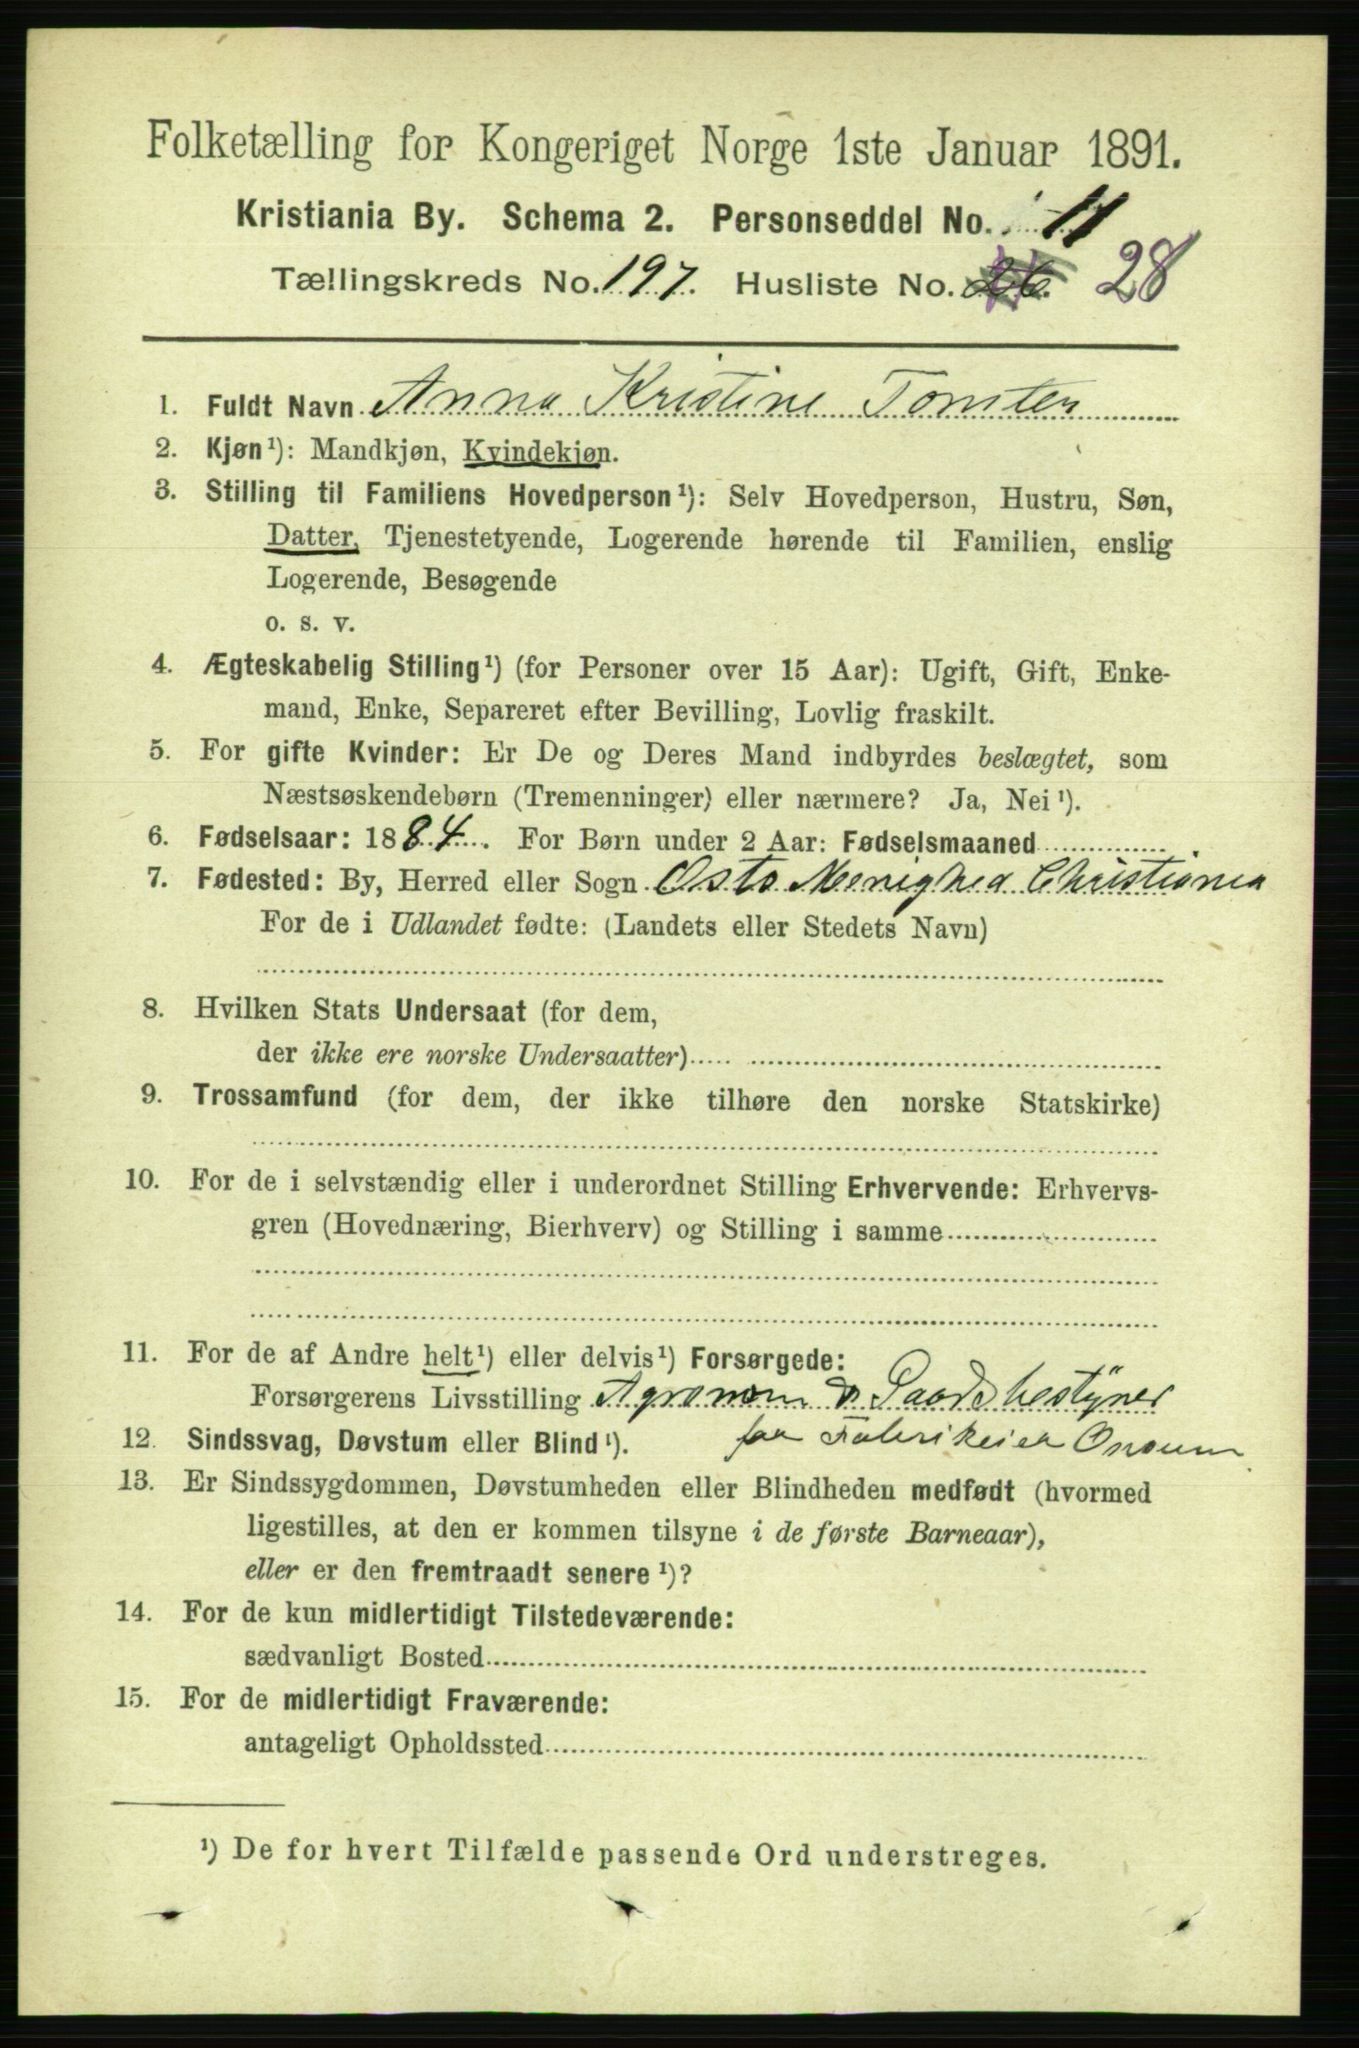 Folketælling for Kongeriget Norge 1ste Januar 1891.
Kristiania By. Schema 2. Personseddel No. 11
Tællingskreds No. 197. Husliste No. 26. 28
1. Fuldt Navn Anna Kristine Tomter
2. Kjøn¹): Mandkjøn, Kvindekjøn.
3. Stilling til Familiens Hovedperson¹): Selv Hovedperson, Hustru, Søn,
Datter, Tjenestetyende, Logerende hørende til Familien, enslig
Logerende, Besøgende
o. s. v.
4. Ægteskabelig Stilling¹) (for Personer over 15 Aar): Ugift, Gift, Enke-
mand, Enke, Separeret efter Bevilling, Lovlig fraskilt.
5. For gifte Kvinder: Er De og Deres Mand indbyrdes beslægtet, som
Næstsøskendebørn (Tremenninger) eller nærmere? Ja, Nei¹).
6. Fødselsaar: 1884. For Børn under 2 Aar: Fødselsmaaned
7. Fødested: By, Herred eller Sogn Oslo Menighed Christiania
For de i Udlandet fødte: (Landets eller Stedets Navn)
8. Hvilken Stats Undersaat (for dem,
der ikke ere norske Undersaatter)
9. Trossamfund (for dem, der ikke tilhøre den norske Statskirke)
10. For de i selvstændig eller i underordnet Stilling Erhvervende: Erhvervs-
gren (Hovednæring, Bierhverv) og Stilling i samme
11. For de af Andre helt¹) eller delvis¹) Forsørgede:
Forsørgerens Livsstilling Agronom & Gaardsbestyrer
12. Sindssvag, Døvstum eller Blind¹). for Fabrikeier
13. Er Sindssygdommen, Døvstumheden eller Blindheden medfødt (hvormed
ligestilles, at den er kommen tilsyne i de første Barneaar),
eller er den fremtraadt senere¹)?
14. For de kun midlertidigt Tilstedeværende:
sædvanligt Bosted
15. For de midlertidigt Fraværende:
antageligt Opholdssted
¹) De for hvert Tilfælde passende Ord understreges.